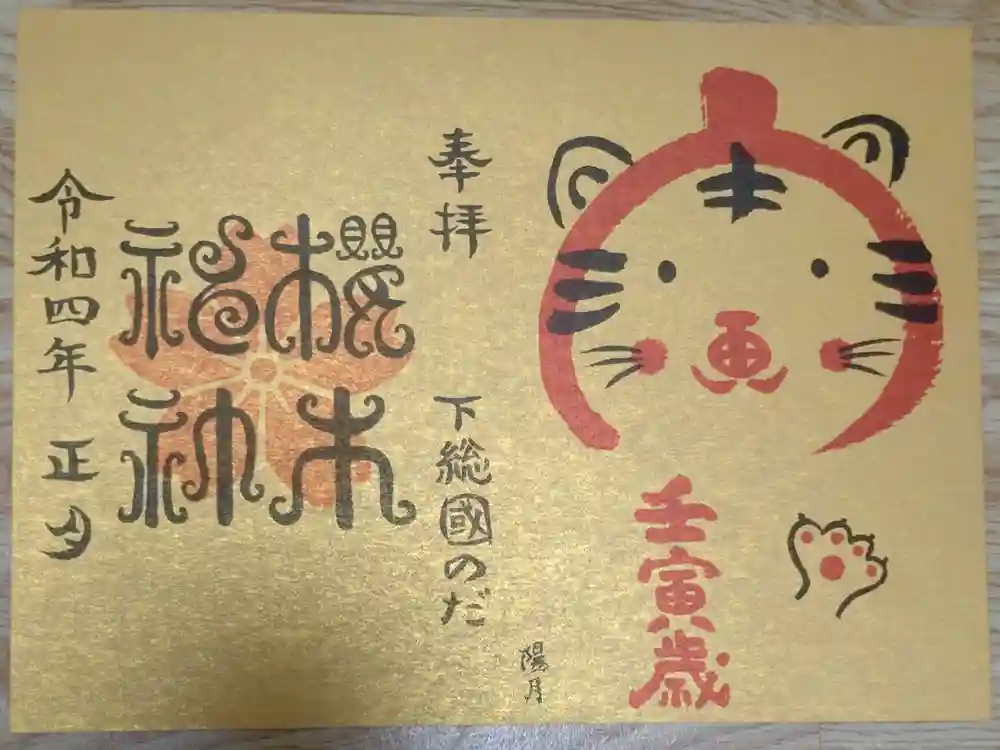 壬寅歳
陽月
奉拝 下総國のだ
櫻木
神社
令和四年 正月